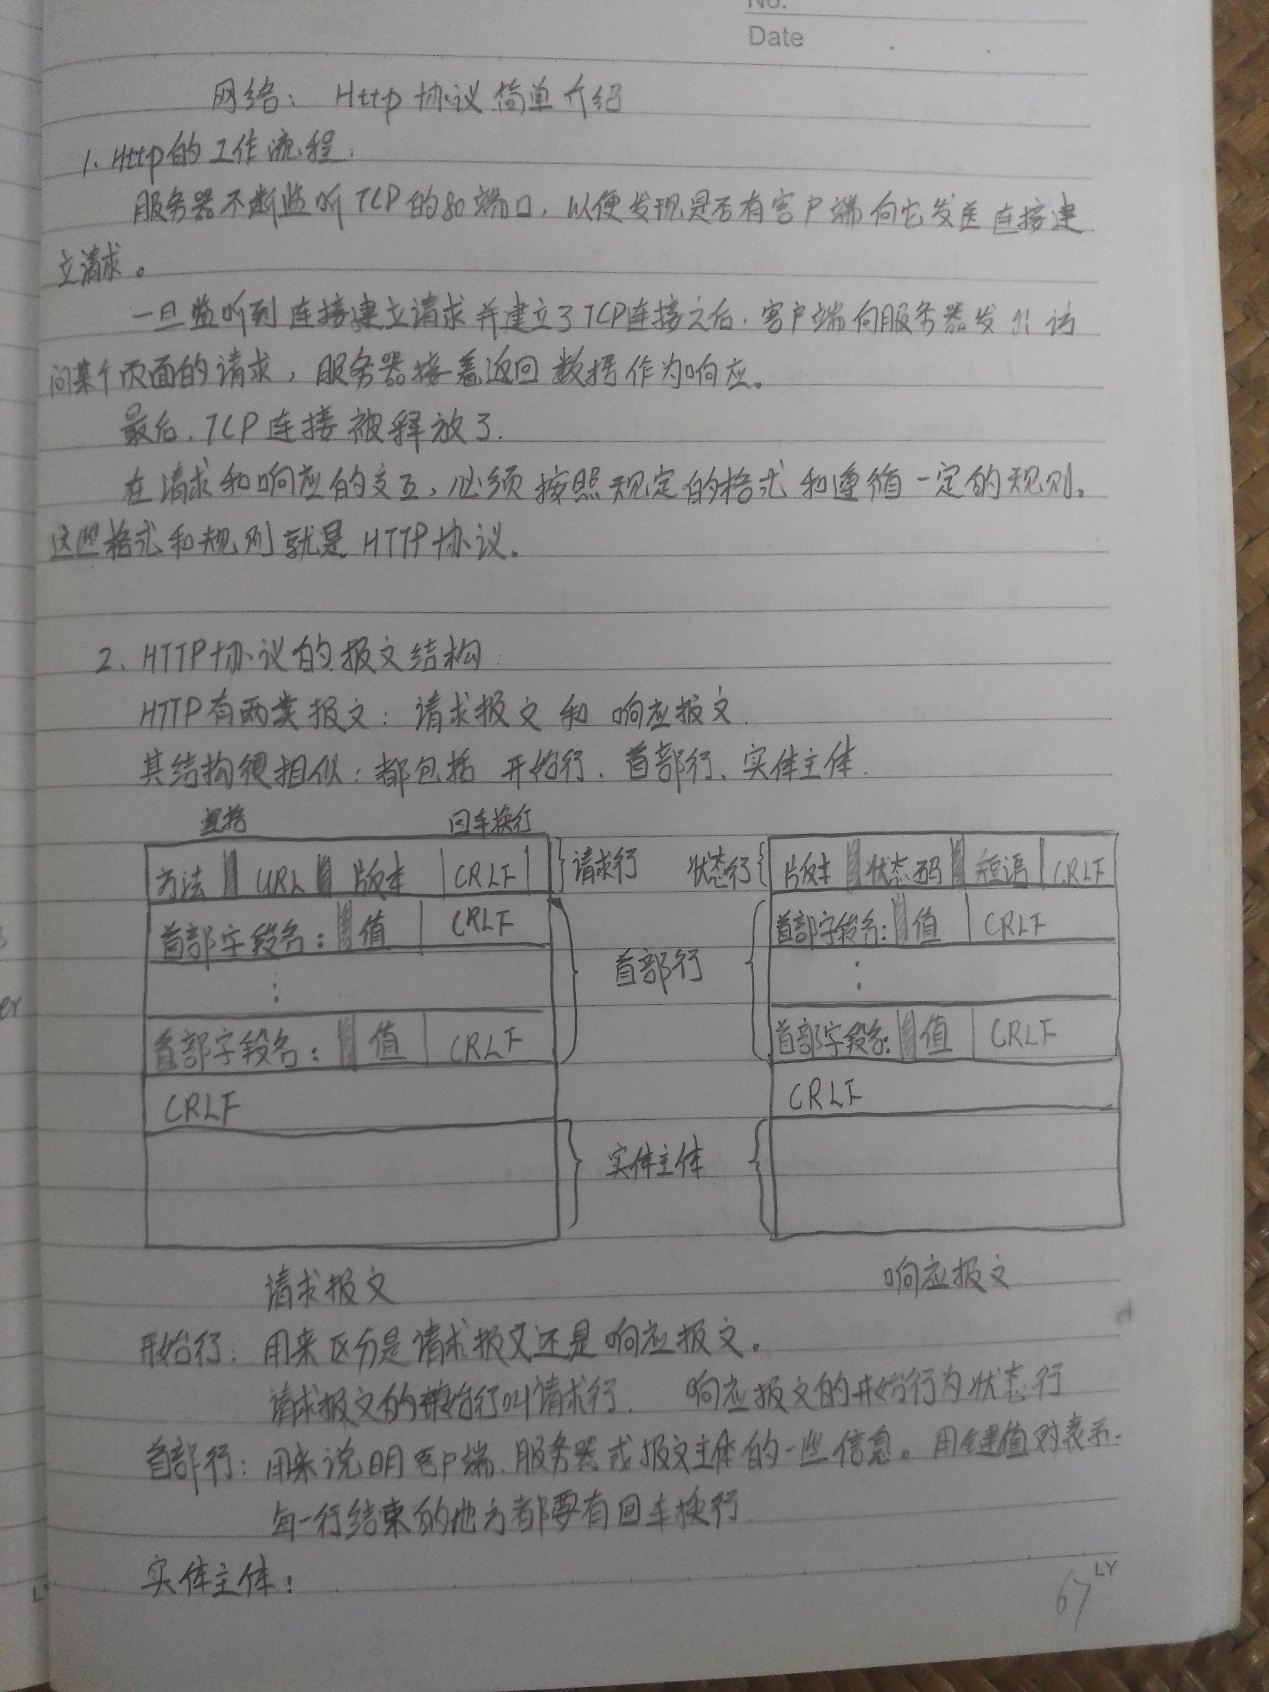 No.
Date
网络： Http 协议简单介绍
1. Http的工作流程：
服务器不断监听TCP的80端口，以便发现是否有客户端向它发送连接建
立请求。
一旦监听到连接建立请求并建立了TCP连接之后，客户端向服务器发出访
问某个页面的请求，服务器接着返回数据作为响应。
最后，TCP连接被释放了．
在请求和响应的交互，必须按照规定的格式和遵循一定的规则。
这些格式和规则就是HTTP协议。
2. HTTP协议的报文结构：
HTTP有两类报文：请求报文和响应报文．
其结构很相似：都包括 开始行、首部行、实体主体．
回车换行
方法 URL 版本 CRLF 请求行 状态行 版本 状态码 短语 CRLF
首部字段名： 值 CRLF 首部字段名： 值 CRLF
⋮ 首部行 ⋮
首部字段名： 值 CRLF 首部字段名： 值 CRLF
CRLF CRLF
实体主体
请求报文 响应报文
开始行：用来区分是请求报文还是响应报文。
请求报文的开始行叫请求行． 响应报文的开始行为状态行
首部行：用来说明客户端、服务器或报文主体的一些信息。用键值对表示．
每一行结束的地方都要有回车换行
实体主体：
67
LY
er